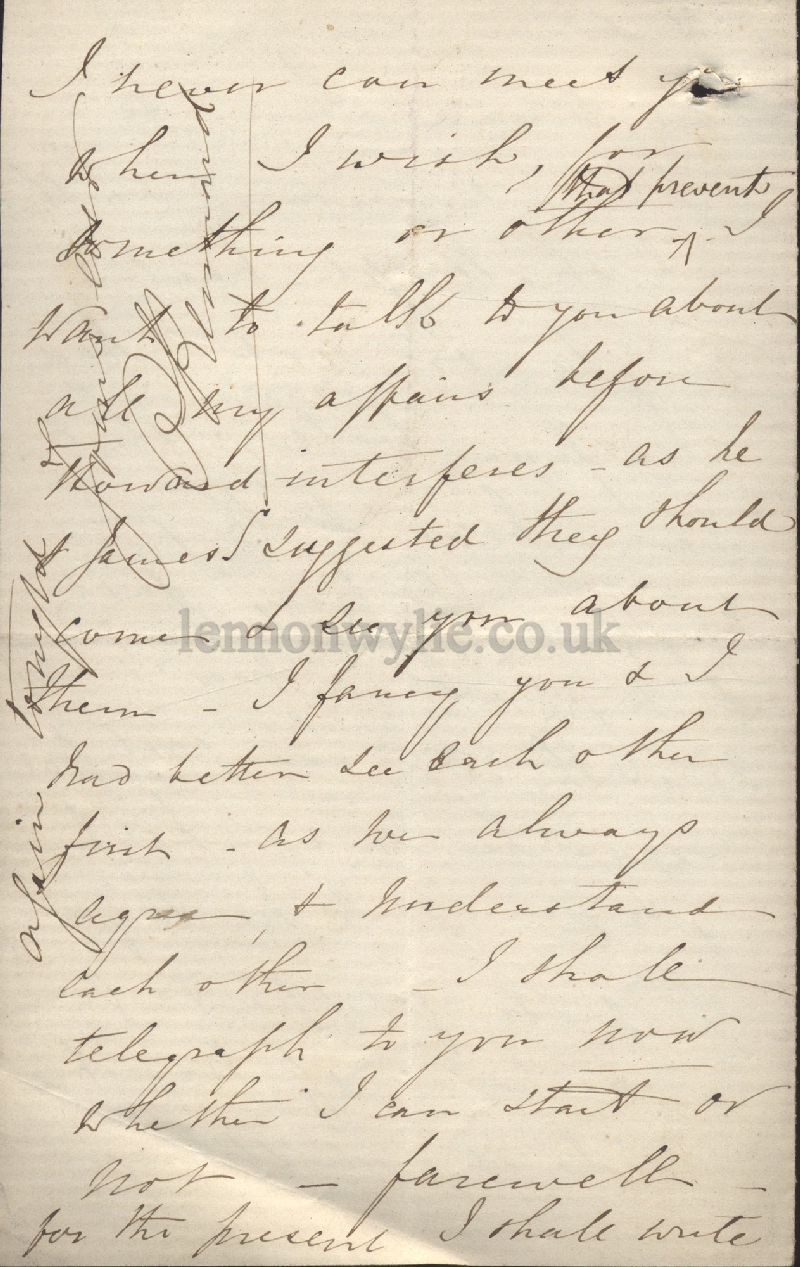 I never can meet you
when I wish, for
something or other ^ that prevents - I
want to talk to you about
all my affairs before
Howard interferes - as he
& James suggested they should
come & see you about
them - I fancy you & I
had better see each other
first - as we always
agree, & understand
each other - I shall
telegraph to you now
whether I can start or
not - farewell -
for the present I shall write
again tonight
lennonwylie.co.uk